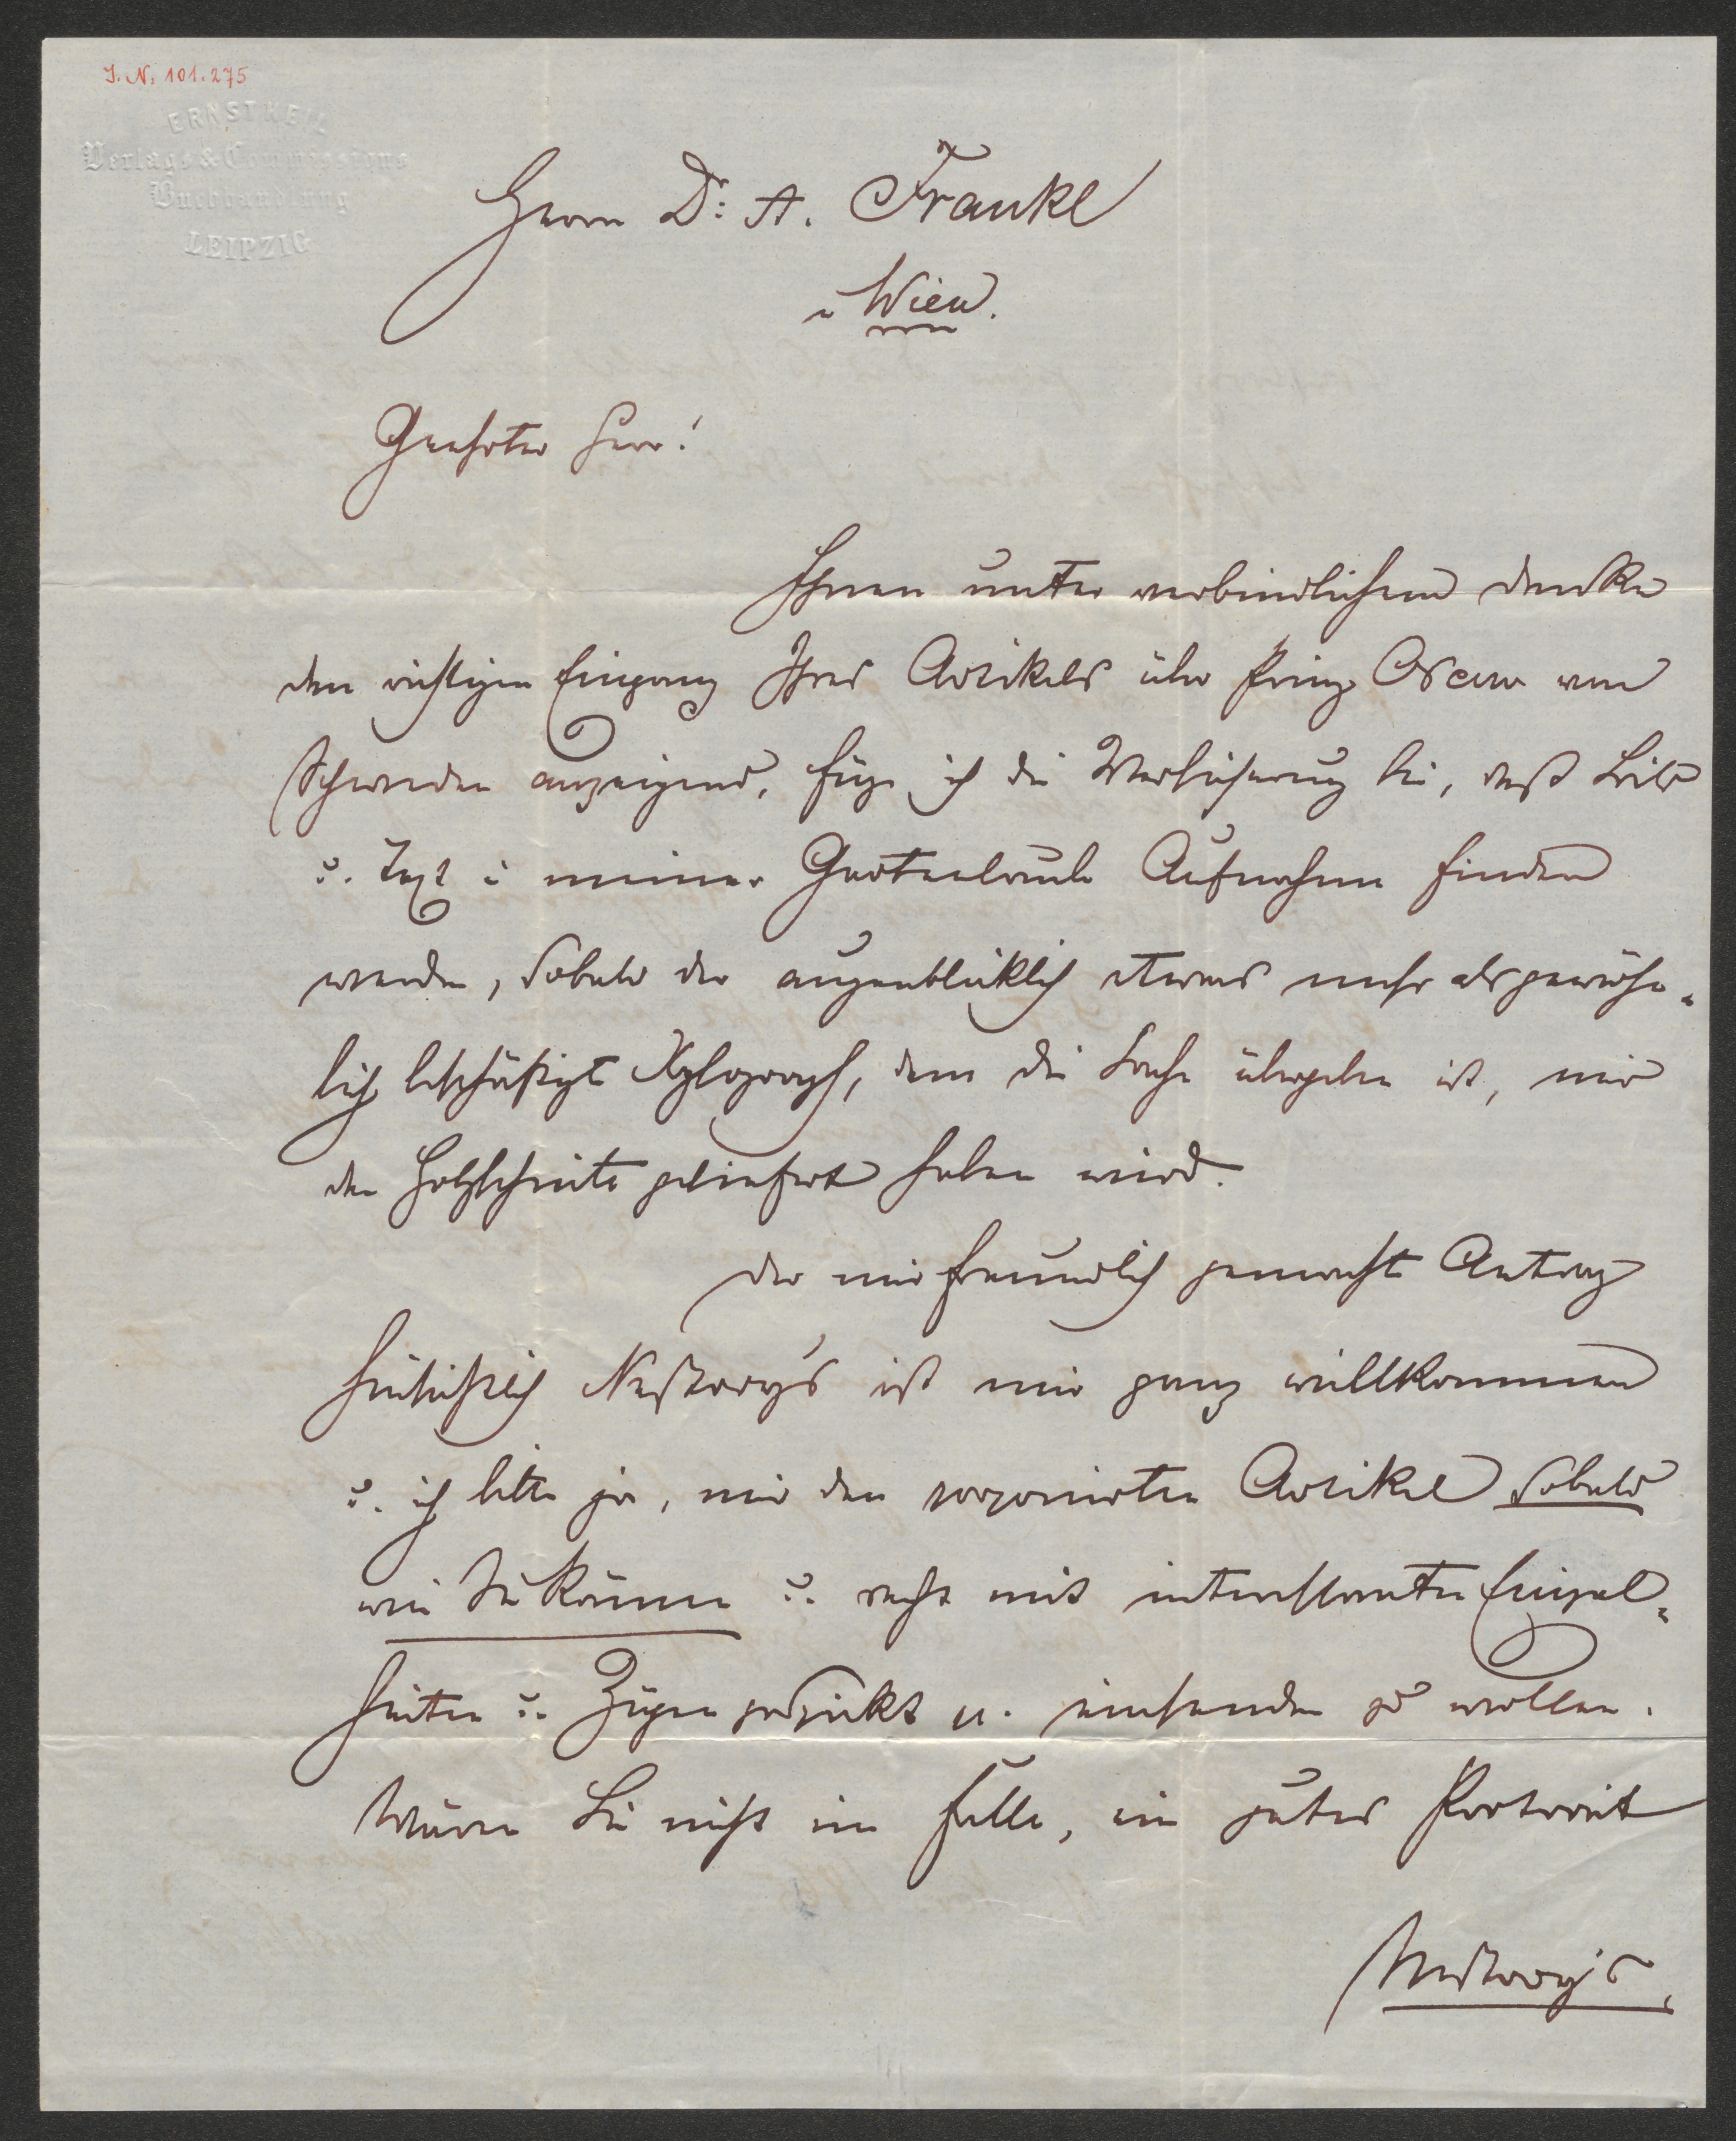 J. N. 101.275
ERNST KEIL
Verlags & Commissions
Buchhandlung
LEIPZIG
Herrn Dr. A. Frankl
i Wien.
Geehrter Herr!
Ihnen unter verbindlichem Danke
den richtigen Eingang Ihres Artikels über Prinz Oscar von
Schweden anzeigend, füge ich die Versicherung bei, daß Bild
u. Text i meiner Gartenlaube Aufnahme finden
werden, sobald der augenblicklich etwas mehr als gewöhn-
lich beschäftigte Xylograph, dem die Sache übergeben ist, mir
den Holzschnitt geliefert haben wird.
Der mir freundlich gemachte Antrag
hinsichtlich Nestroy's ist mir ganz willkommen
u. ich bitte Sie, mir den Artikel sobald
wie Sie können u. recht mit interessanten Einzel-
heiten u. Zügen gespickt einsenden zu wollen.
Wären Sie nicht im Falle, ein gutes Portrait
Nestroy's,